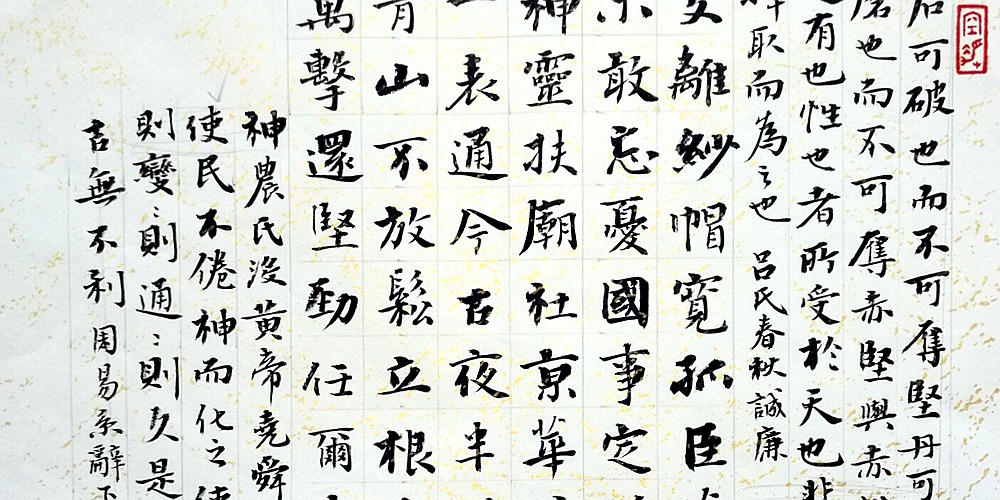 石可破也而不可奪堅丹可
磨也而不可奪赤堅與赤
之有也性也者所受於天也非
擇取而為之也 呂氏春秋誠廉
支離紗帽寬孤臣
未敢忘憂國事定
神靈扶廟社京華
一表通今古夜半
青山不放鬆立根
萬擊還堅勁任爾
神農氏沒黃帝堯舜
使民不倦神而化之使
則變：則通：則久是
吉無不利 周易系辭下